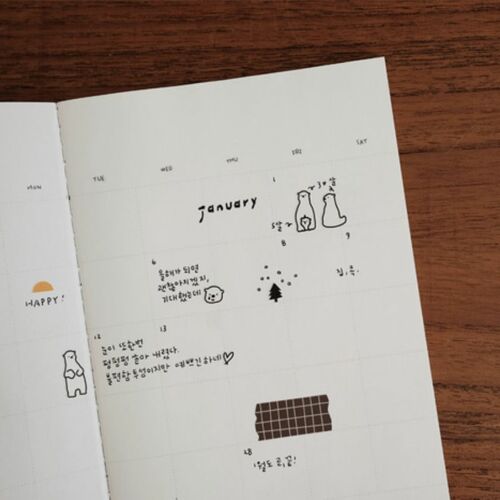 MON TUE WED THU FRI SAT
january
1
30살
5살
6
8
9
올해가 되면
괜찮아지겠지,
기대했는데
집, 콕.
HAPPY!
12
13
눈이 또한번
펑펑펑 쏟아 내렸다.
불편함 투성이지만 예쁘긴 하네
28
1월도 곧, 끝!